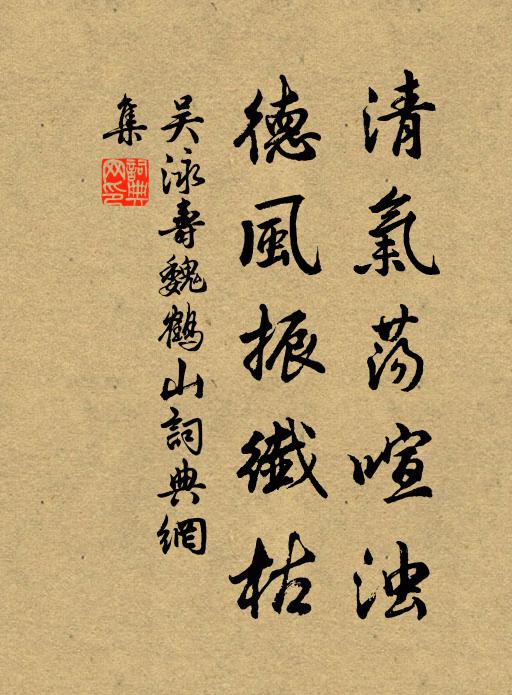 清氣蕩喧浊
德風振纖枯
吳泳壽魏鶴山詞典網
集
詞典网印